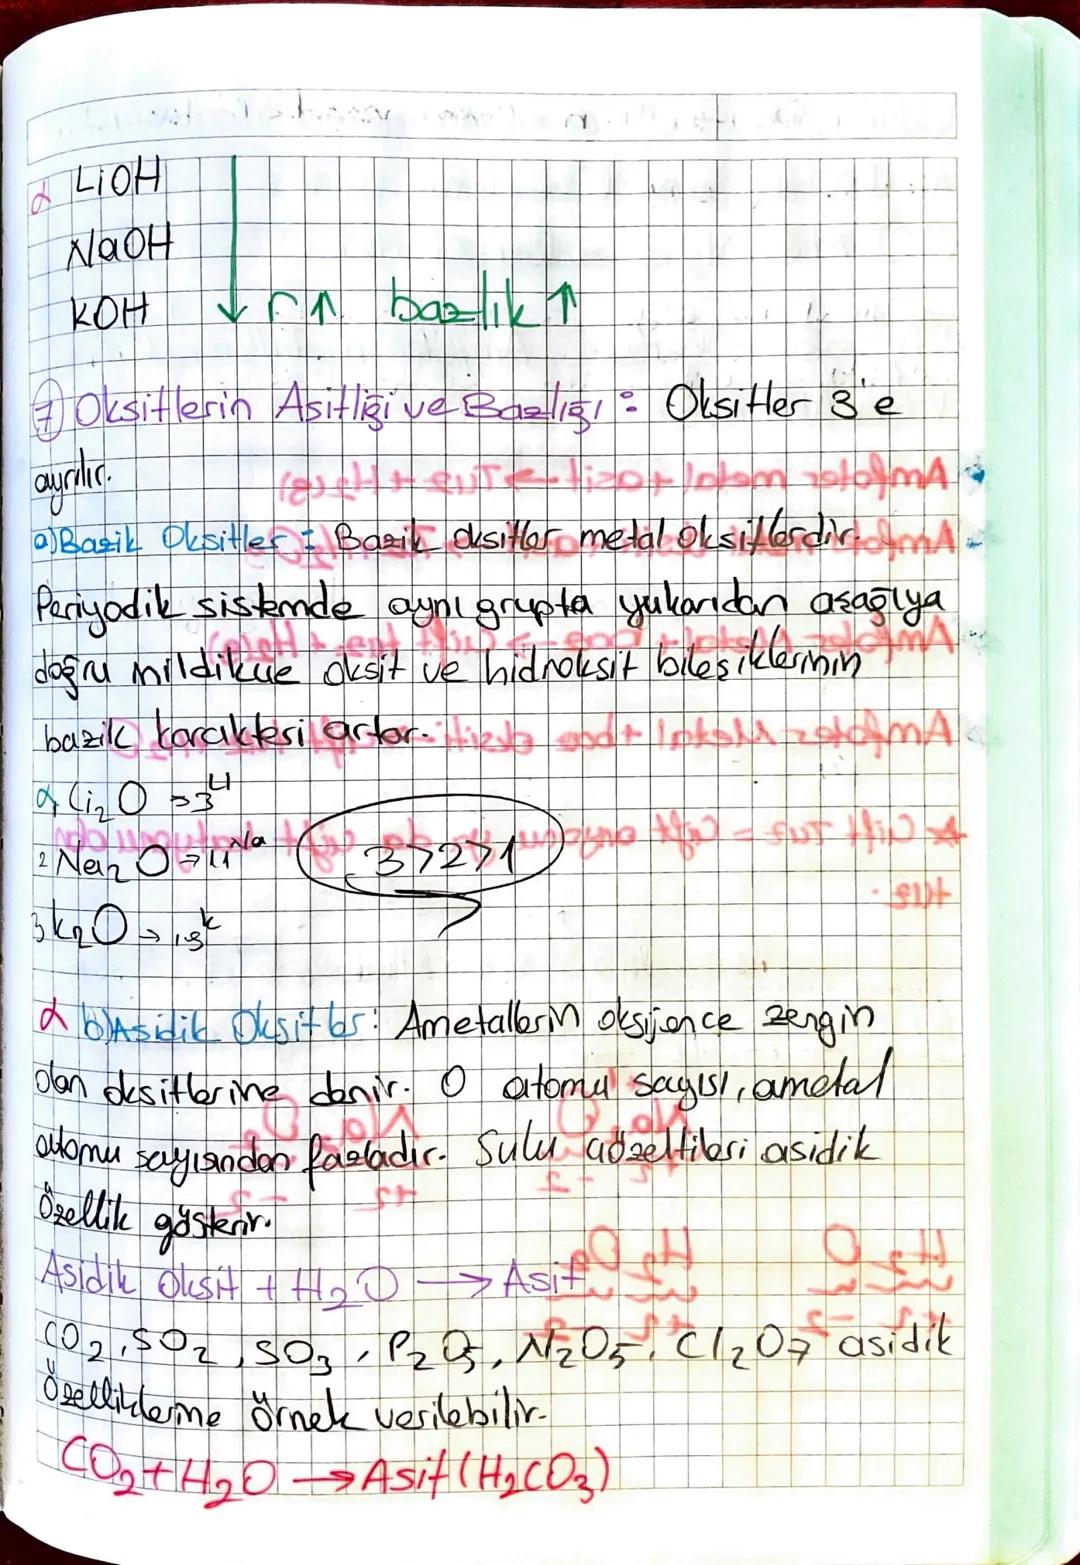 α LiOH
NaOH
KOH ↓ r↑ bazlık ↑
7) Oksitlerin Asitliği ve Bazlığı : Oksitler 3'e
ayrılır.
a) Bazik Oksitler : Bazik oksitler metal oksitlerdir.
Periyodik sistemde aynı grupta yukarıdan aşağıya
doğru inildikçe oksit ve hidroksit bileşiklerinin
bazik karakteri artar.
α Li₂O → 3Li
2 Na₂O → 11Na 3>2>1
3 K₂O → 19K
α b) Asidik Oksitler: Ametallerin oksijence zengin
olan oksitlerine denir. O atomu sayısı, ametal
atomu sayısından fazladır. Sulu çözeltileri asidik
özellik gösterir.
Asidik Oksit + H₂O → Asit
CO₂, SO₂, SO₃, P₂O₅, N₂O₅, Cl₂O₇ asidik
özelliklerine örnek verilebilir.
CO₂ + H₂O → Asit (H₂CO₃)